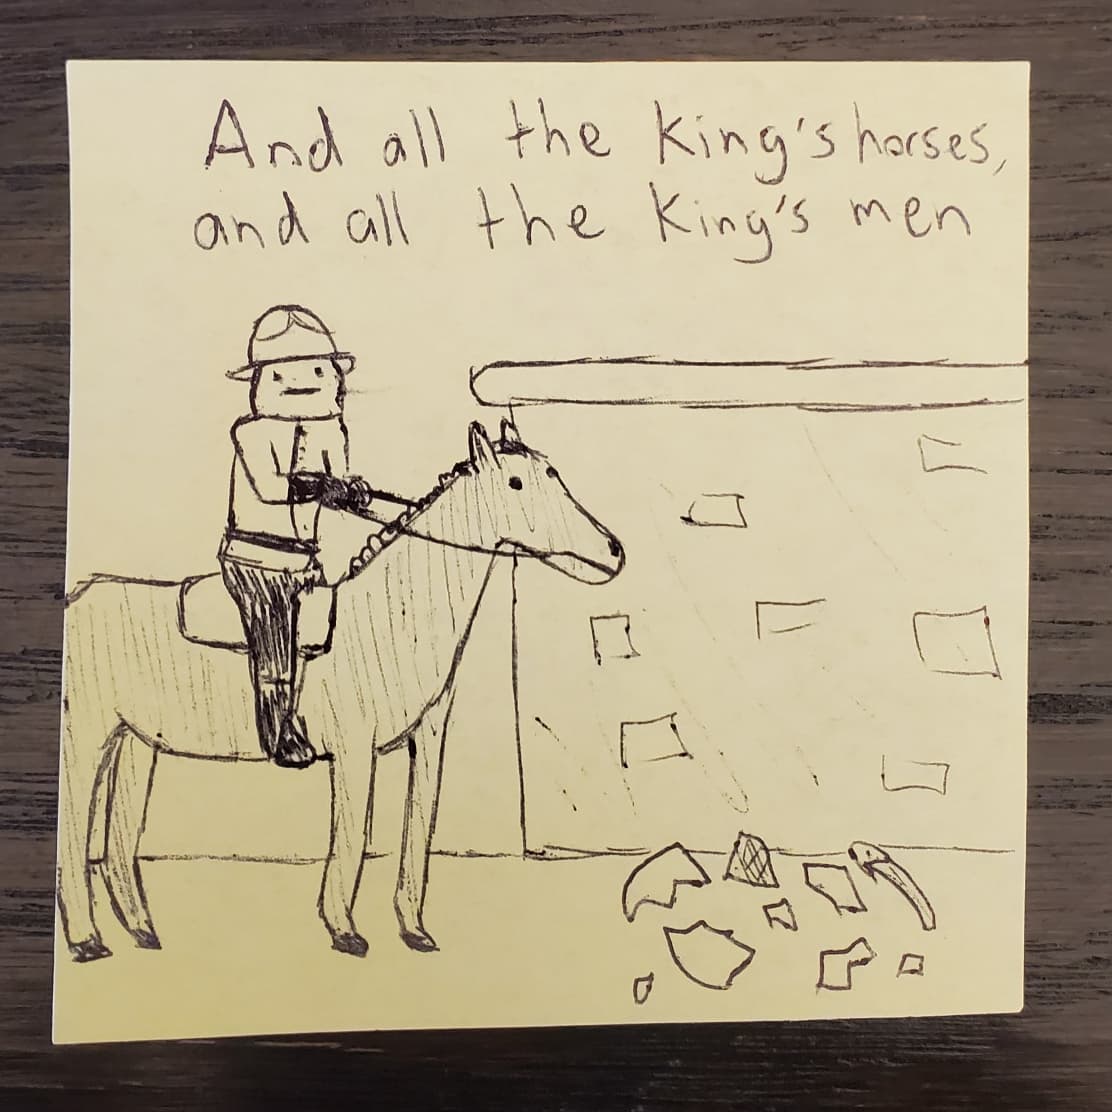 And all the King's horses,
and all the King's men